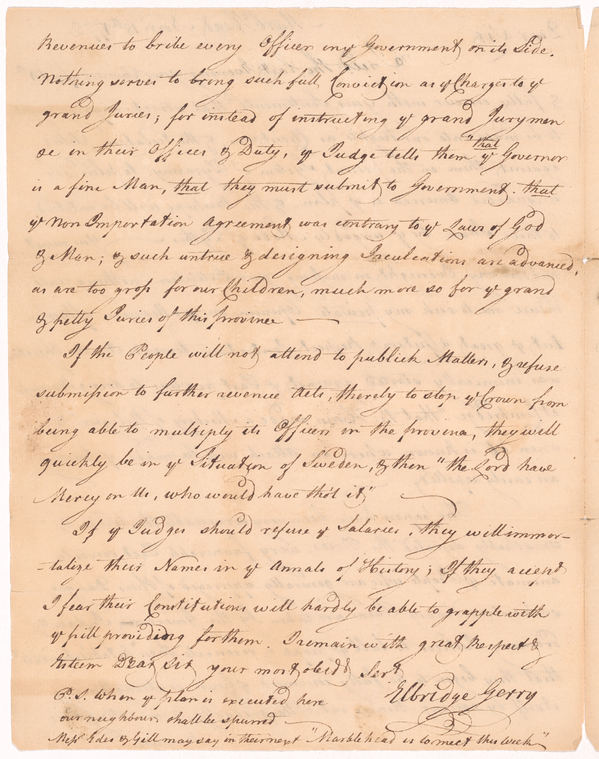 Revenues to bribe every Officer in ye Government on its Side.
Nothing serves to bring such full Conviction as ye Charges to ye
grand Juries; for instead of instructing ye grand Jurymen
&c in their Offices & Duty, ye Judge tells them "that ye Governor
is a fine Man, that they must submit to Government. that
ye Non Importation Agreement was contrary to ye Laws of God
& Man; & such untrue & designing Inculcations are advanced,
as are too gross for our Children, much more so for ye grand
& petty Juries of this province —
If the People will not attend to publick Matters, & refuse
submission to further revenue Acts, thereby to stop ye Crown from
being able to multiply its Officers in the province, they will
quickly be in ye Situation of Sweden, & then "the Lord have
Mercy on Us, who would have tho't it" —
If ye Judges should refuse ye Salaries, they will immor-
-talize their Names in ye Annals of History; If they accept
I fear their Constitutions will hardly be able to grapple with
ye pill providing for them. I remain with great Respect &
Esteem Dear Sir your most obedt Sert
Elbridge Gerry
P.S. when ye plan is executed here
our neighbours shall be spurred —
Messs Edes & Gill may say in their next "Marblehead is to meet this Week"